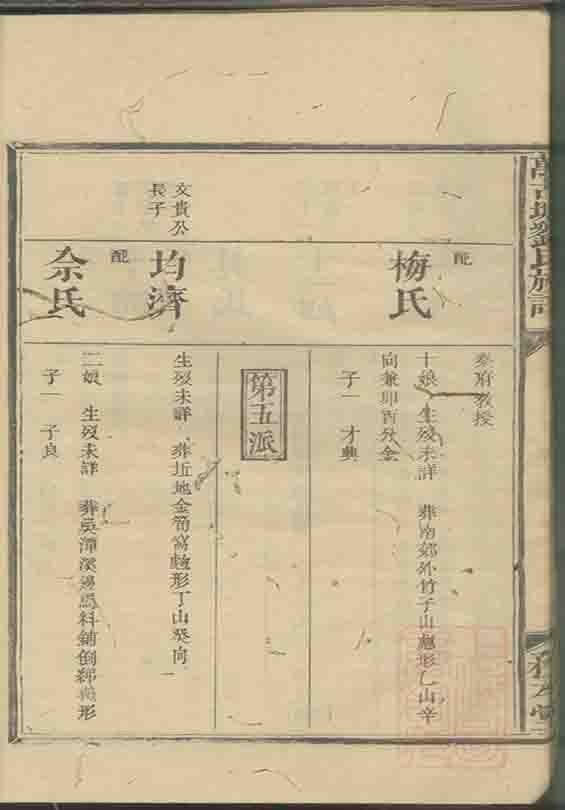 劉氏族譜
秦府教授
配
梅氏
十娘 生歿未詳 葬南郊外竹子山形乙山辛
向兼卯酉分金
子一 才典
第五派
文貴公
長子
均濟
生歿未詳 葬近地金筒窩形丁山癸向
配
余氏
二娘 生歿未詳 葬吳潭溪邊馬料鋪倒形
子一 子良